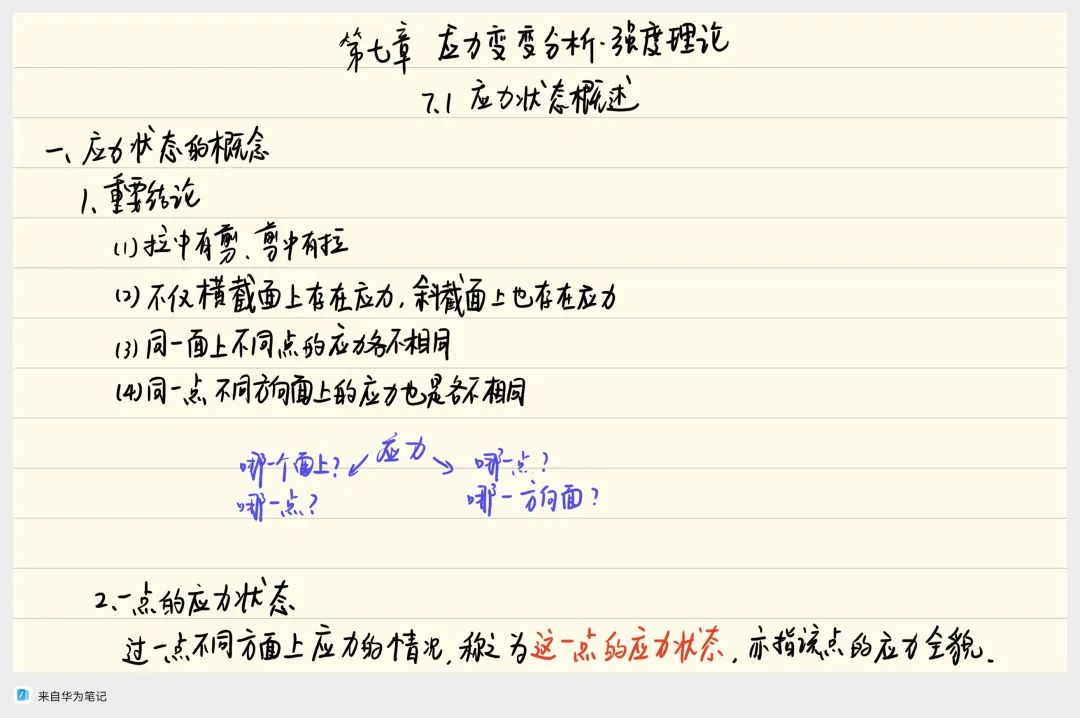 第七章 应力变变分析·强度理论
7.1 应力状态概述
一、应力状态的概念
1、重要结论
(1)拉中有剪、剪中有拉
(2)不仅横截面上存在应力,斜截面上也存在应力
(3)同一面上不同点的应力各不相同
(4)同一点不同方向面上的应力也是各不相同
应力
哪一个面上? 哪一点?
哪一点? 哪一方向面?
2、一点的应力状态
过一点不同方面上应力的情况,称之为这一点的应力状态,亦指该点的应力全貌.
来自华为笔记